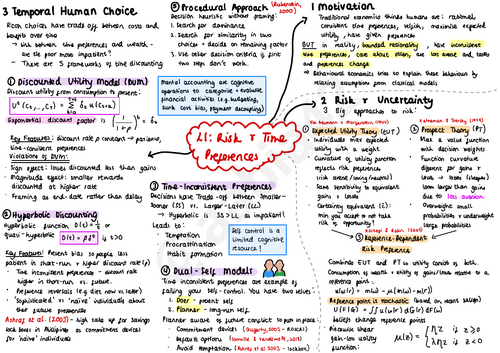 3 Temporal Human Choice
Each choices have trade off between costs and
benefits over time
→ link between time preferences and wealth -
are the poor more impatient?
→ There are 5 frameworks of time discounting
① Discounted Utility Model (DUM)
Discount utility from consumption at present:
Exponential discount factor is
Key Features: discount rate ρ constant → patience,
time-consistent preferences
Violations of DUM:
→ Sign effect: losses discounted less than gains
→ Magnitude effect: smaller rewards
discounted at higher rate
→ Framing as end-date rather than delay
② Hyperbolic Discounting
Hyperbolic function
quasi-hyperbolic
Key Feature: Present bias so people less
patient in short-run ∴ higher discount (ρ)
→ Time inconsistent preferences - discount rate
higher in short-run vs. future.
→ Preference reversals (e.g. diet now vs. later)
→ 'Sophisticated' vs 'naïve' individuals about
their future preferences
Ashraf et al. (2003) - high take up for savings
lock boxes in Philippines as commitment devices
for 'naïve' individuals
⑤ Procedural Approach (Rubinstein, 2000)
Decision heuristic without framing:
1. Search for dominance.
2. Search for similarity in two
choices + decide on remaining factor
3. Use other decision criteria if first
two steps don't work.
Mental accounting are cognitive
operations to categorise + evaluate
financial activities (e.g. budgeting,
sunk cost bias, payment decoupling)
L1: Risk + Time
Preferences
③ Time-Inconsistent Preferences
Decisions have trade-off between Smaller-
Sooner (SS) vs. Larger-Later (LL)
→ Hyperbolic is SS>LL as impatient!
Leads to:
- Temptation
- Procrastination
- Habit formation
Self control is a
limited cognitive
resource!
④ Dual-Self Models
Time inconsistent preferences are example of
failing self-control. You have two selves:
1. Doer - present self
2. Planner - long-run self.
Planner aware of conflict so put in place:
- Commitment devices
- Default options
- Avoid temptation (Ashraf et al 2003 - lockbox)
1 Motivation
Traditional economics thinks humans are: rational,
consistent time preferences, selfish, maximise expected
utility, have given preferences
BUT in reality, bounded rationality, have inconsistent
time preferences, care about others, are loss averse and
preferences change
⇒ Behavioural economics tries to explain these behaviours by
relaxing assumption from classical models
2 Risk + Uncertainty
3 Big approaches to risk:
① Expected Utility Theory (EUT)
→ Individuals max expected
utility with a weight
→ Curvature of utility function
reflects risk preference
→ risk averse/loving/neutral
→ Same sensitivity to equivalent
gains + losses
→ Certainty equivalent (C):
min you accept + not take
risk + opportunity!
② Prospect Theory (PT)
→ Has a value function
with decision weights
→ Function curvature
different for gains +
losses → losses (steeper)
loom larger than gains
due to loss aversion
→ Overweight small
probabilities + underweight
large probabilities
③ Reference-Dependent
Risk Preferences
Combine EUT and PT so utility consists of both.
Consumption of wealth + utility of gains/losses relative to a
reference point:
Reference point is stochastic (based on recent beliefs)
→ beliefs change reference points
→ Piecewise linear
gain-loss utility
function: